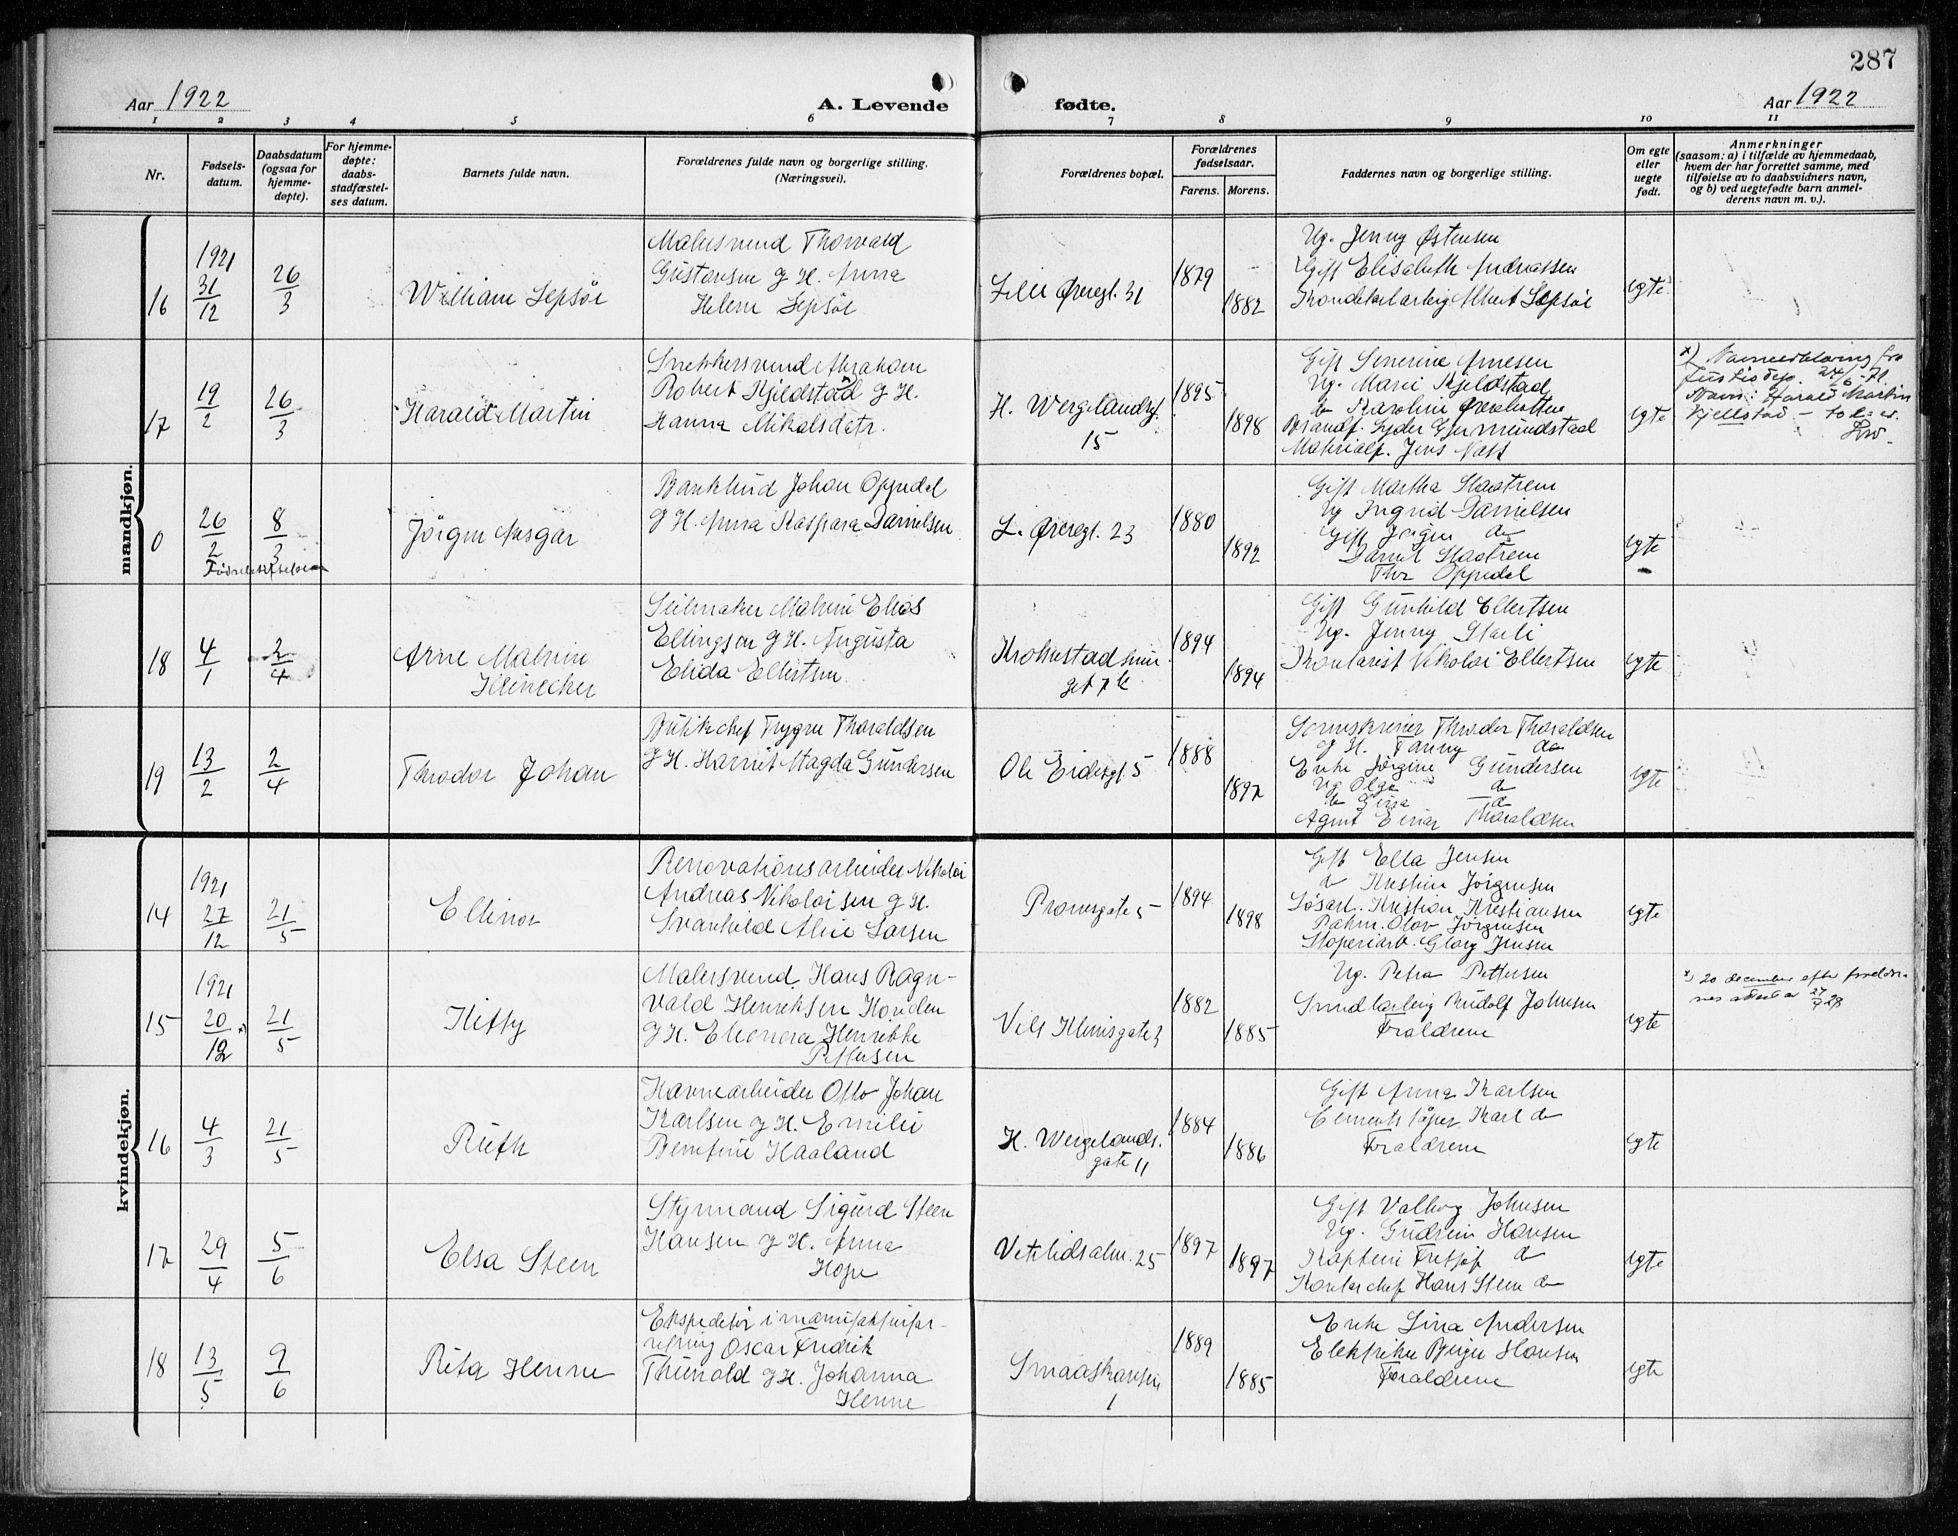 287
Aar 1922
A. Levende
fødte.
Aar 1922
1 2 3 4 5 6 7 8 9 10 11
Nr.
Fødsels-
datum.
Daabsdatum
(ogsaa for
hjemme-
døpte).
For hjemme-
døpte:
daabs-
stadfæstel-
ses datum.
Barnets fulde navn.
Forældrenes fulde navn og borgerlige stilling.
(Næringsvei).
Forældrenes bopæl.
Forældrenes
fødselsaar.
Farens. Morens.
Faddernes navn og borgerlige stilling.
Om egte
eller
uegte
født.
Anmerkninger
(saasom: a) i tilfælde av hjemmedaab,
hvem der har forrettet samme, med
tilføielse av to daabsvidners navn,
og b) ved uegtefødte barn anmel-
derens navn m. v.).
mandkjøn.
16
1921
31/12
26/3
William Sepsøe
Malersvend Thorvald
Gustavsen g H. Anna
Helene Sepsøe
Lille Øvregt. 31
1879
1882
Ug. Jenny Østensen
Gift Elisabeth Andreassen
Albert Sepsøe
egte
17
19/2
26/3
Harald Martin
Snekkersvend Abraham
Robert Kjeldstad g H.
Hanna Mikalsdatr.
H. Wergelandsgt.
15
1895
1898
Gift Severine Arnesen
Ug. Marie Kjeldstad
do Karoline
Brandf. Gjermundstad
Materialf. Jens
egte
x) Navneerklæring fra
Justisdep. 24/6-71.
Navn: Harald Martin
Kjellstad
0
26/2
8/3
Jörgen Ansgar
Bankbud Johan Oppedal
g H. Anna Kaspara Danielsen
L. Øvregt. 23
1880
1892
Gift Martha
Ug Ingrid Danielsen
Gift Jörgen do
Daniel
Thor Oppedal
egte
18
4/1
2/4
Arne Malvin
Heinecker
Seilmaker Malvin Elias
Ellingsen g H. Augusta
Elida Ellertsen
Krohnstadsmu
get 7 b
1894
1894
Gift Gunhild Ellertsen
Ug. Jenny
Kontorist Nikolai Ellertsen
egte
19
13/2
2/4
Theodor Johan
Butikchef Trygve Tharaldsen
g H. Harriet Magda Gundersen
Ole Eidesgt 5
1888
1897
Sorenskriver Theodor Tharaldsen
g H. Fanny do
Enke Jörgine Gundersen
Ug Olga do
do Gina do
Agent Einar Tharaldsen
egte
kvindekjøn.
14
1921
27/12
21/5
Ellinor
Renovationsarbeider Nikolai
Andreas Nikolaisen g H.
Svanhild Alice Larsen
Prosesgate 5
1894
1898
Gift Ella Jensen
do Kristine Jørgensen
Løsarb. Kristian Kristiansen
Pakm. Olov Jørgensen
Jensen
egte
15
1921
20/12 x)
21/5
Kitty
Malersvend Hans Ragn-
vald Henriksen Hovden
g H. Eleonora Henrikke
Pettersen
Nils Klimsgate 3
1882
1885
Ug. Petra Pettersen
Smedlærling Rudolf Johnsen
Forældrene
egte
x) 20 december efter foreldre-
nes attest av 27/7 28
16
4/3
21/5
Ruth
Havnearbeider Otto Johan
Karlsen g H. Emilie
Berntine Haaland
H. Wergelands.
gate 11
1884
1886
Gift Anna Karlsen
Cementstøper Karl do
Forældrene
egte
17
29/4
5/6
Elsa Steen
Styrmand Sigurd Steen
Hansen g H. Anna
Hope
Vetrlidsalm. 25
1897
1897
Gift Valborg Johnsen
Ug. Gudrun Hansen
Kaptein Fritjof do
Kontorchef Hans Steen do
egte
18
13/5
9/6
Rita Henne
Ekspeditør i manufakturfor-
retning Oscar Fredrik
Thunold g H. Johanna
Henne
Smaaskansen
1
1889
1885
Enke Lina Andersen
Elektriker Birger Hansen
Forældrene
egte